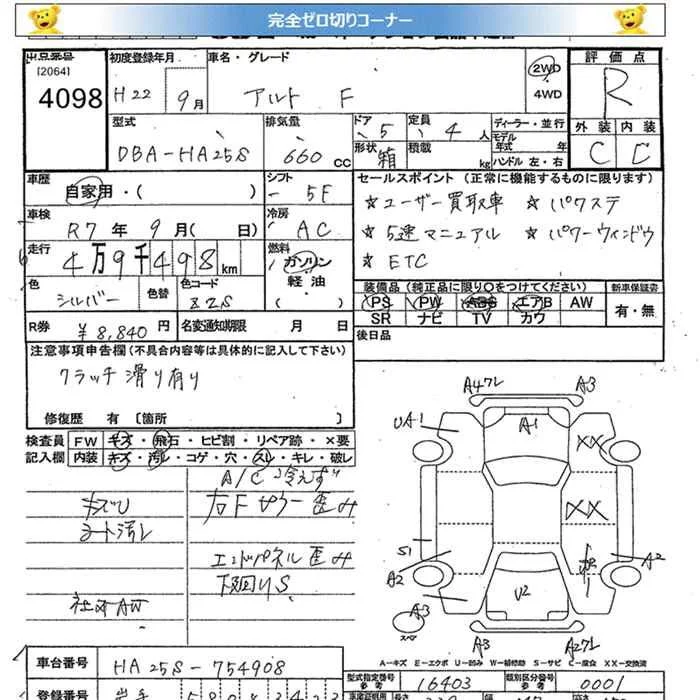 完全ゼロ切りコーナー
出品番号
[2064]
4098
初度登録年月
H22 9月
車名・グレード
アルト F
2WD
4WD
評価点
R
外装 内装
C C
型式
DBA-HA25S
排気量
660 CC
ドア
5
形状
箱
定員
4 人
積載
kg
ディーラー・並行
モデル
年式 年
ハンドル 左・右
車歴
自家用・( )
シフト
5F
車検
R7年 9月( 日)
冷房
AC
走行
4万9千498km
燃料
ガソリン
軽油
色
シルバー
色替
色コード
Z2S
R券
¥8,840円
名変通知期限 月 日
セールスポイント (正常に機能するものに限ります)
☆ユーザー買取車 ☆パワステ
☆5速マニュアル ☆パワーウィンドウ
☆ETC
装備品 (純正品に限り○をつけてください)
新車保証書
PS PW ABS エアB AW
SR ナビ TV カワ
有・無
後日品
注意事項申告欄(不具合内容等は具体的に記入して下さい)
クラッチ滑り有り
修復歴 有 〔箇所 〕
検査員
記入欄
FW キズ・飛石・ヒビ割・リペア跡・×要
内装 キズ・汚レ・コゲ・穴・スレ・キレ・破レ
A/C冷えず
キズU
シート汚レ
右Fピラー歪み
エンドパネル歪み
下廻りS
社外AW
A4ワレ
A3
UA1
A1
XX
XX
S1
A2
A2
A3
スペア
U2
A3
A2ワレ
A—キズ E—エクボ U—凹み W—補修跡 S—サビ C—腐食 XX—交換済
車台番号
HA25S-754908
型式指定番号
参考
16403
類別区分番号
参考
0001
登録番号
岩手 580